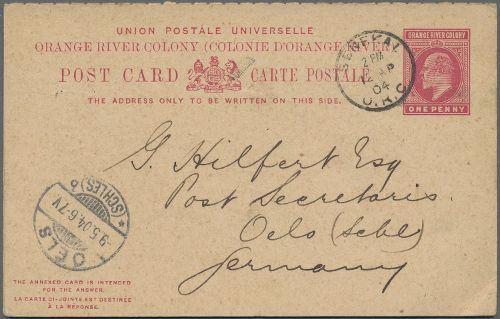 UNION POSTALE UNIVERSELLE
ORANGE RIVER COLONY (COLONIE D'ORANGE RIVER)
POST CARD
CARTE POSTALE
THE ADDRESS ONLY TO BE WRITTEN ON THIS SIDE.
SENEKAL
2 PM
AP
04
O.R.C
ORANGE RIVER COLONY
ONE PENNY
G. Hilfert Esq
Post Secretaris
Oels (Schl)
Germany
OELS
-9.5.04.6-7V
(SCHLES)
THE ANNEXED CARD IS INTENDED
FOR THE ANSWER.
LA CARTE CI-JOINTE EST DESTINÉE
À LA RÉPONSE.